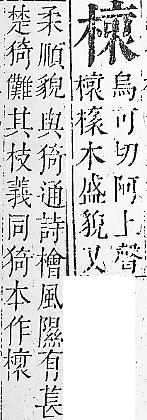 烏可切阿上聲
木盛貌又
柔順貌與猗通詩檜風隰有萇
楚猗儺其枝義同猗本作